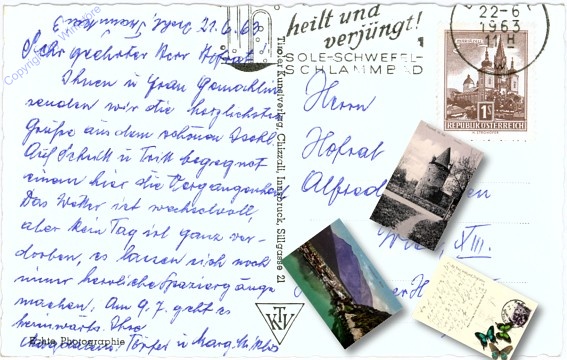 Bad Ischl, 21.6.63
Sehr geehrter Herr Hofrat
Ihnen u Frau Gemahlin
senden wir die herzlichsten
Grüße aus dem schönen Ischl.
Auf Schritt u Tritt begegnet
einem hier die Vergangenheit
Das Wetter ist wechselvoll,
aber kein Tag ist ganz ver-
dorben, es lassen sich noch
immer herrliche Spaziergänge
machen. Am 9.7. geht es
heimwärts. Ihre
Echte Photographie
Copyright by
Tiroler Kunstverlag Chizzali, Innsbruck, Sillgasse 21
TKV
heilt und
verjüngt!
SOLE-SCHWEFEL-
SCHLAMMBAD
22-6
1963
11 H
1S
REPUBLIK ÖSTERREICH
Herrn
Hofrat
Alfred
XIII.